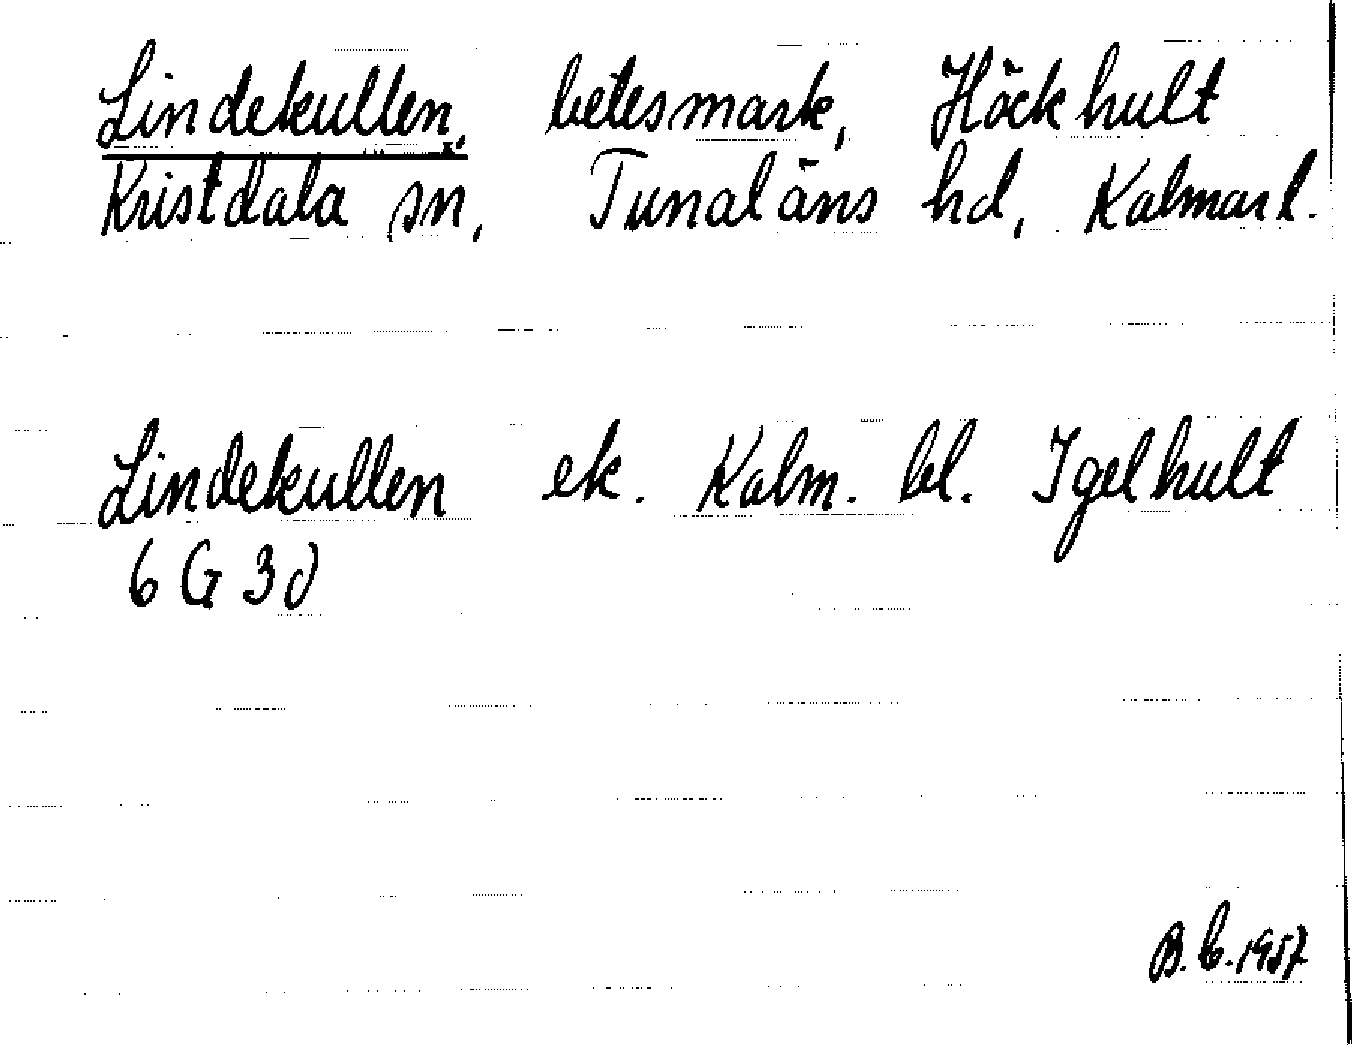 Lindekullen, betesmark, Höckhult
Kristdala sn, Tunaläns hd, Kalmar l.
Lindekullen ek. Kalm. bl. Igelhult
6 G 3d
B. b. 1957